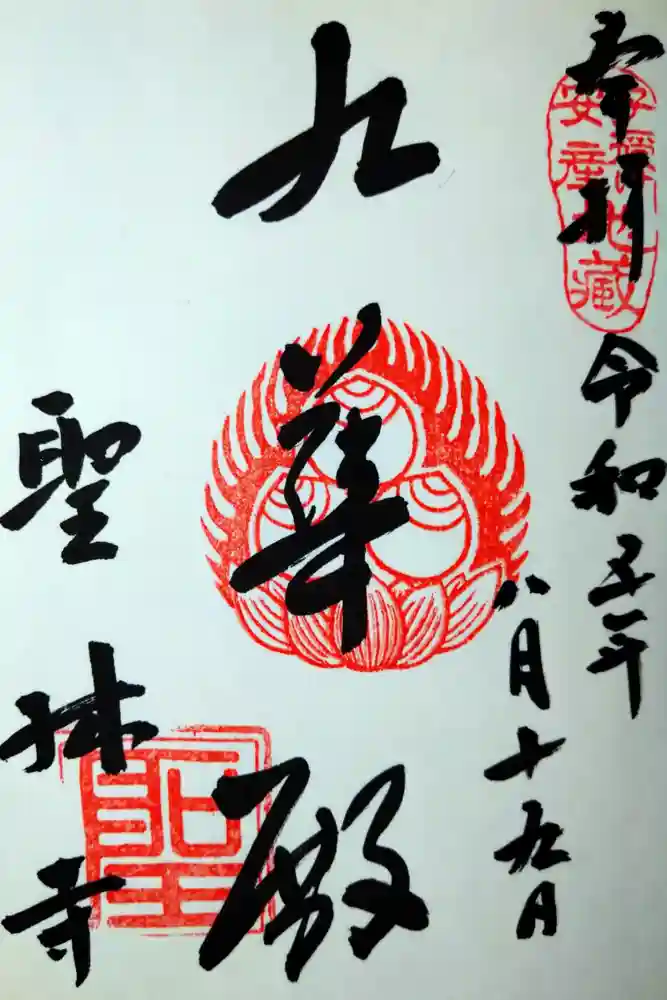 奉拝
安産
地藏
令和五年
八月十九日
九華殿
聖林寺
聖